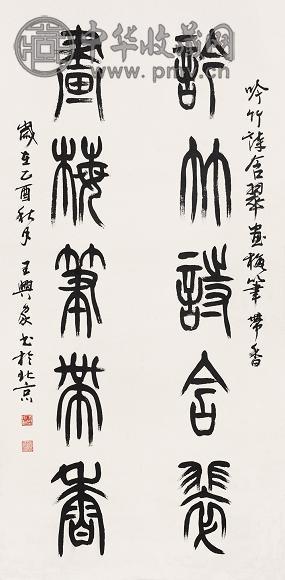 吟竹詩含翠畫梅筆帶香
吟竹詩含翠
畫梅筆帶香
歲在乙酉秋月王興家書於北京
中华收藏网
www.prncv.cn